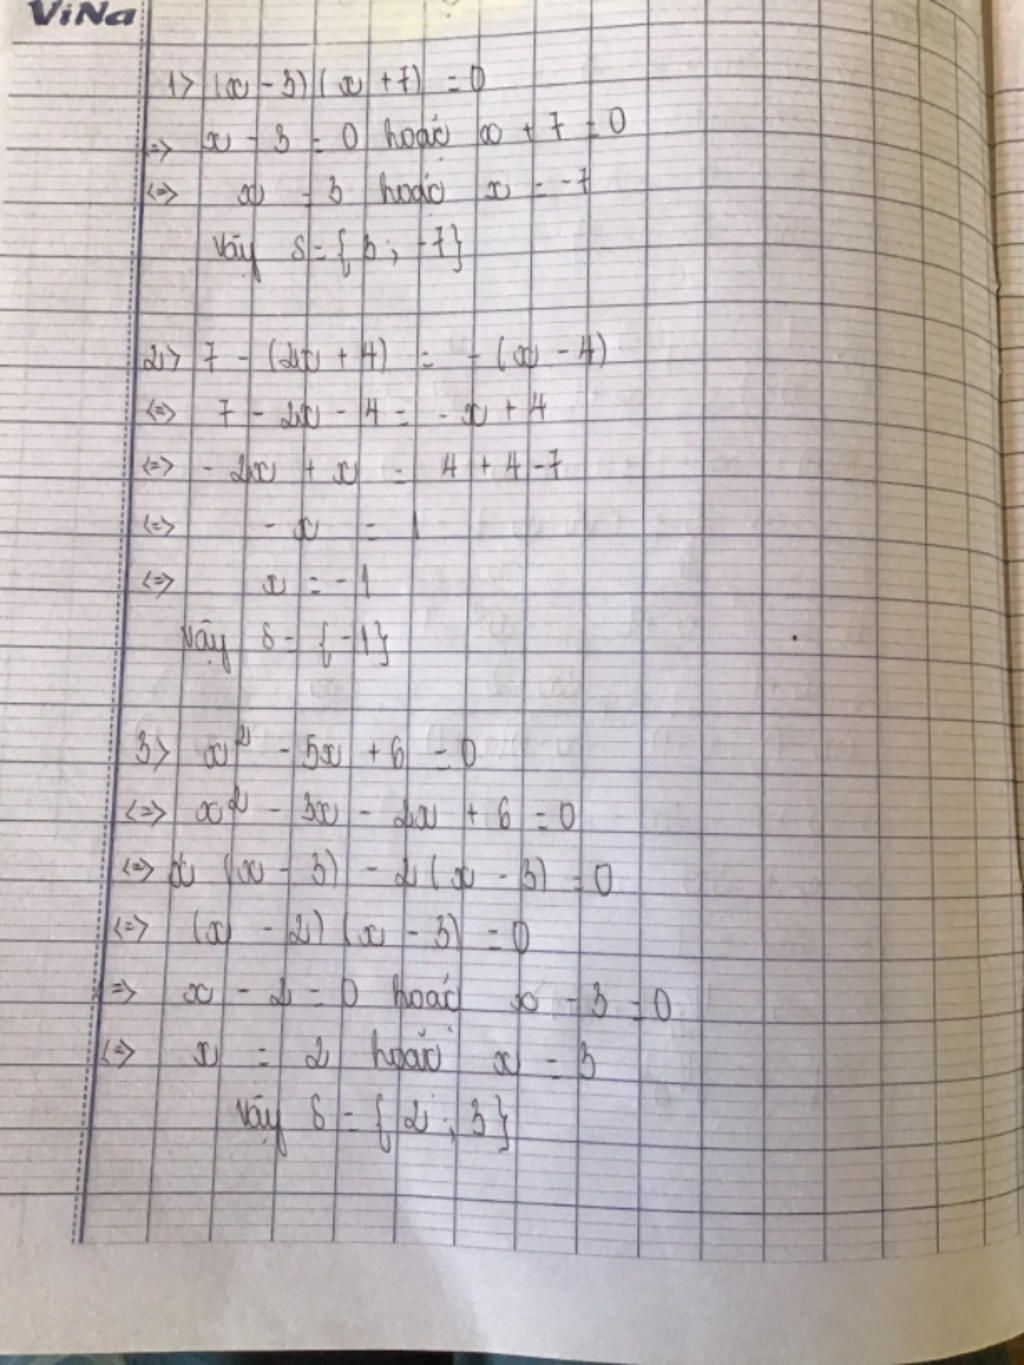 ViNa
1> (x - 3) (x + 7) = 0
<=> x - 3 = 0 hoặc x + 7 = 0
<=> x = 3 hoặc x = -7
Vậy S = { 3 ; -7 }
2> 7 - (2x + 4) = - (x - 4)
<=> 7 - 2x - 4 = - x + 4
<=> - 2x + x = 4 + 4 - 7
<=> - x = 1
<=> x = - 1
Vậy S = { -1 }
3> x² - 5x + 6 = 0
<=> x² - 3x - 2x + 6 = 0
<=> x (x - 3) - 2 (x - 3) = 0
<=> (x - 2) (x - 3) = 0
=> x - 2 = 0 hoặc x - 3 = 0
<=> x = 2 hoặc x = 3
Vậy S = { 2 ; 3 }